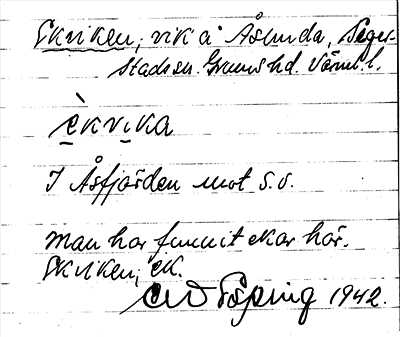 Ekviken, vik å Åsunda, Seger-
stads sn. Grums hd. Värml. l.
èkvika
I Åsfjorden mot S.V.
Man har funnit ekar här.
Ekviken, ek.
1942.